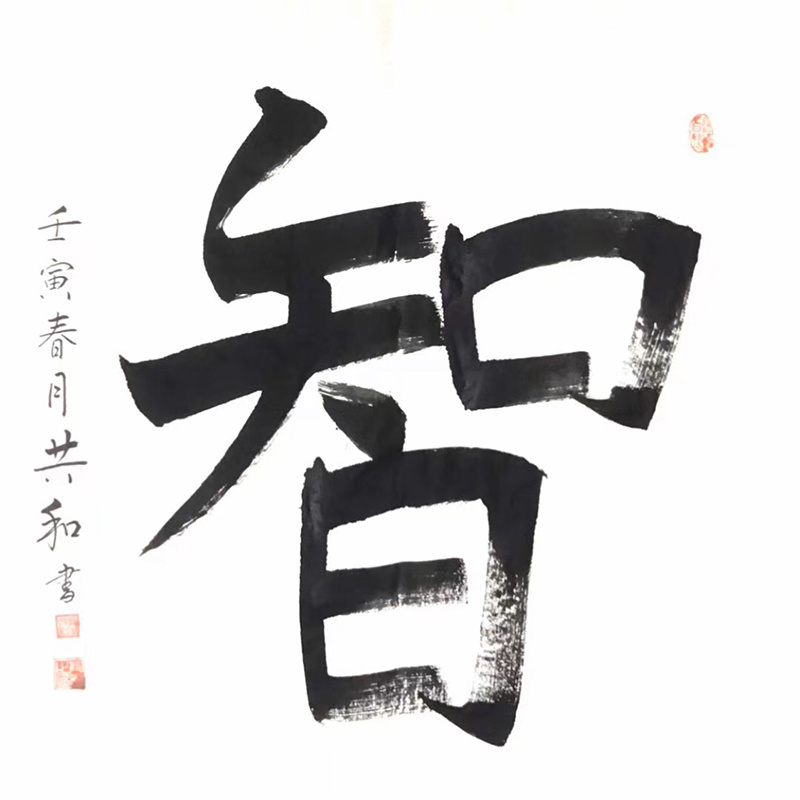 智
壬寅春月共和书